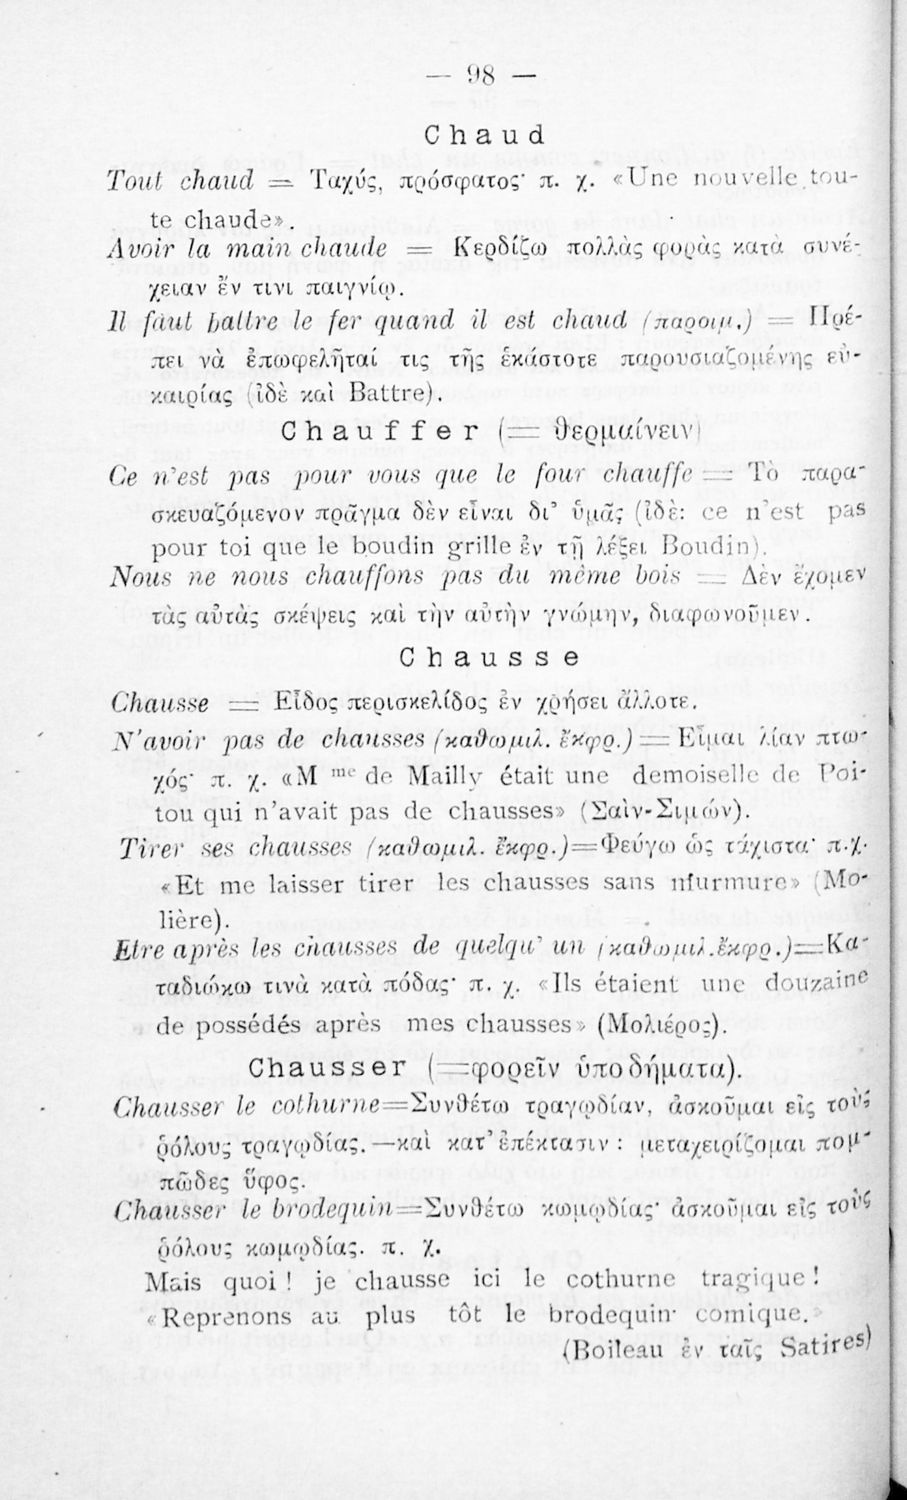 — 98 —
Chaud
Tout chaud = Ταχύς, πρόσφατος· π. χ. «Une nouvelle tou-
te chaude».
Avoir la main chaude = Κερδίζω πολλὰς φορὰς κατὰ συνέ-
χειαν ἔν τινι παιγνίῳ.
Il faut battre le fer quand il est chaud (παροιμ.) = Πρέ-
πει νὰ ἐπωφελῆταί τις τῆς ἑκάστοτε παρουσιαζομένης εὐ-
καιρίας (ἰδὲ καὶ Battre).
Chauffer (= θερμαίνειν)
Ce n'est pas pour vous que le four chauffe = Τὸ παρα-
σκευαζόμενον πρᾶγμα δὲν εἶναι δι' ὑμᾶς (ἰδὲ: ce n'est pas
pour toi que le boudin grille ἐν τῇ λέξει Boudin).
Nous ne nous chauffons pas du même bois = Δὲν ἔχομεν
τὰς αὐτὰς σκέψεις καὶ τὴν αὐτὴν γνώμην, διαφωνοῦμεν.
Chausse
Chausse = Εἶδος περισκελίδος ἐν χρήσει ἄλλοτε.
N'avoir pas de chausses (καθωμιλ. ἔκφρ.) = Εἶμαι λίαν πτω-
χός· π. χ. «M me de Mailly était une demoiselle de Poi-
tou qui n'avait pas de chausses» (Σαὶν-Σιμών).
Tirer ses chausses (καθωμιλ. ἔκφρ.)=Φεύγω ὡς τάχιστα· π.χ.
«Et me laisser tirer les chausses sans murmure» (Mo-
lière).
Etre après les chausses de quelqu' un (καθωμιλ.ἔκφρ.)=Κα-
ταδιώκω τινὰ κατὰ πόδας· π. χ. «Ils étaient une douzaine
de possédés après mes chausses» (Μολιέρος).
Chausser (=φορεῖν ὑποδήματα).
Chausser le cothurne=Συνθέτω τραγῳδίαν, ἀσκοῦμαι εἰς τοὺς
ῥόλους τραγῳδίας.—καὶ κατ' ἐπέκτασιν : μεταχειρίζομαι πομ-
πῶδες ὕφος.
Chausser le brodequin=Συνθέτω κωμῳδίας· ἀσκοῦμαι εἰς τοὺς
ῥόλους κωμῳδίας. π. χ.
Mais quoi ! je chausse ici le cothurne tragique !
«Reprenons au plus tôt le brodequin comique.»
(Boileau ἐν ταῖς Satires)